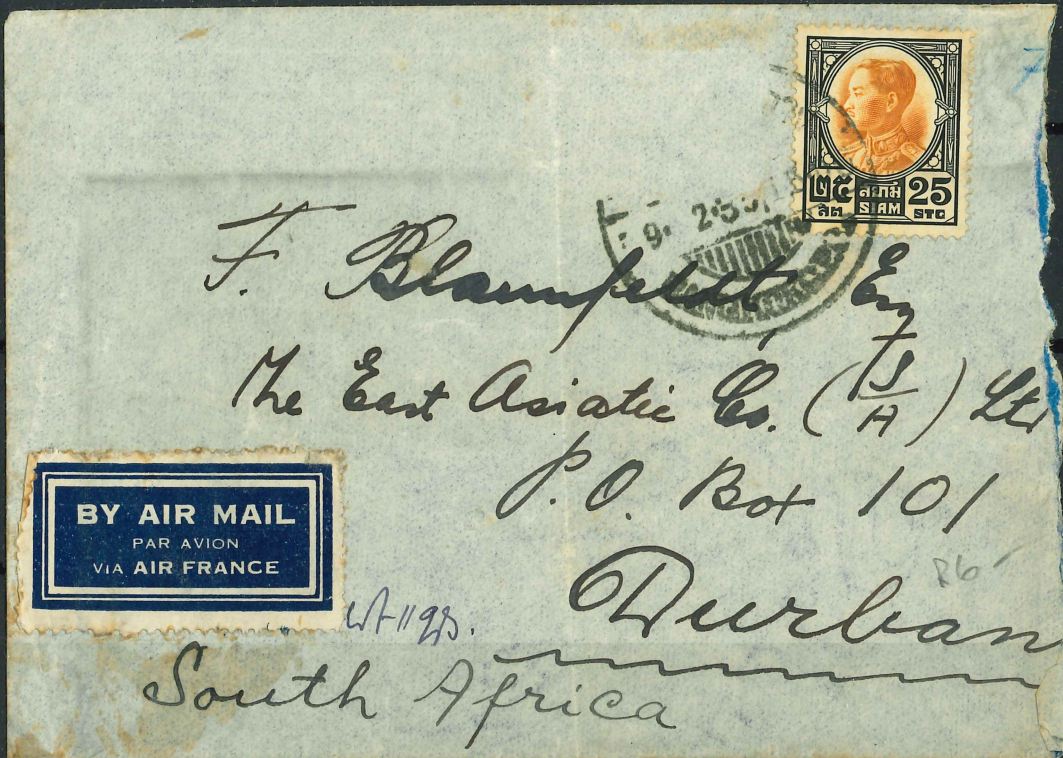 ๒๕ สยาม 25
ส.ต. SIAM STG
9. 2.
F. Blaumfeldt Esq
The East Asiatic Co. (S/A) Ltd
P.O. Box 101
Durban
South Africa
BY AIR MAIL
PAR AVION
VIA AIR FRANCE